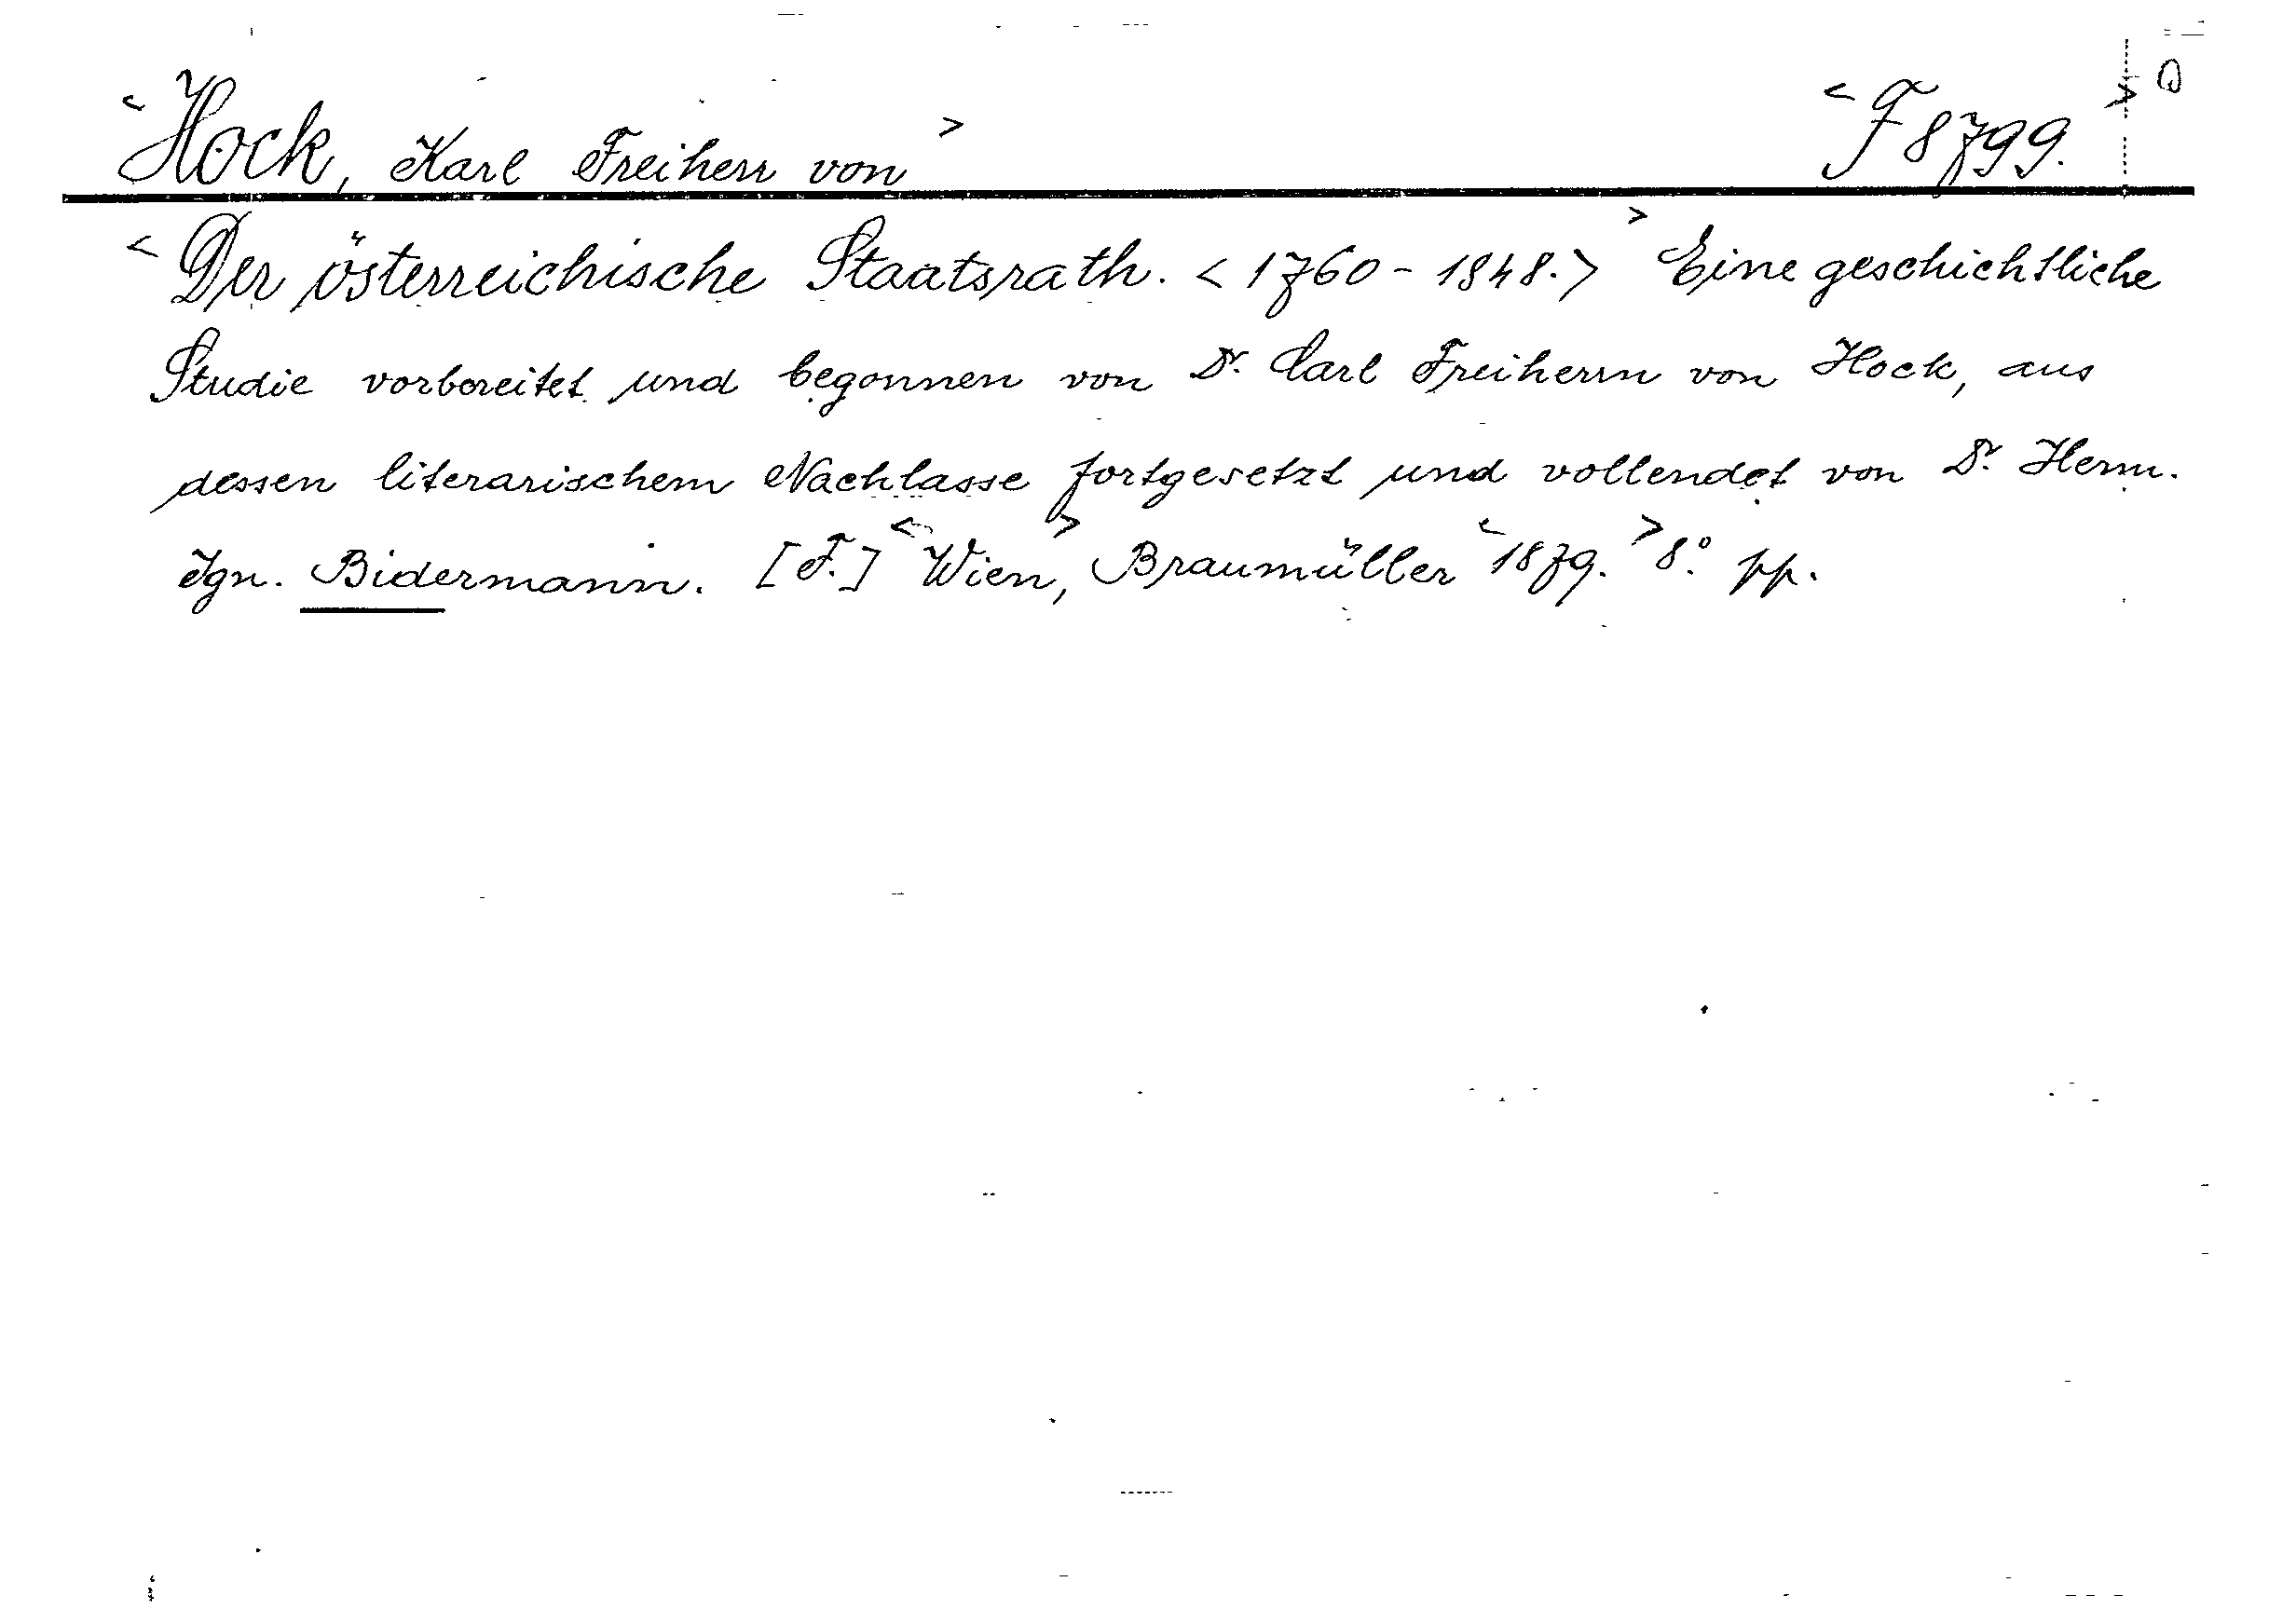 <Hock, Karl Freiherr von> <F 8799.> Q
<Der österreichische Staatsrath. <1760-1848.>> Eine geschichtliche
Studie vorbereitet und begonnen von Dr. Carl Freiherrn von Hock, aus
dessen literarischem Nachlasse fortgesetzt und vollendet von Dr. Herm.
Ign. Bidermann. [F.] <Wien,> Braumüller <1879.> 8.° pp.